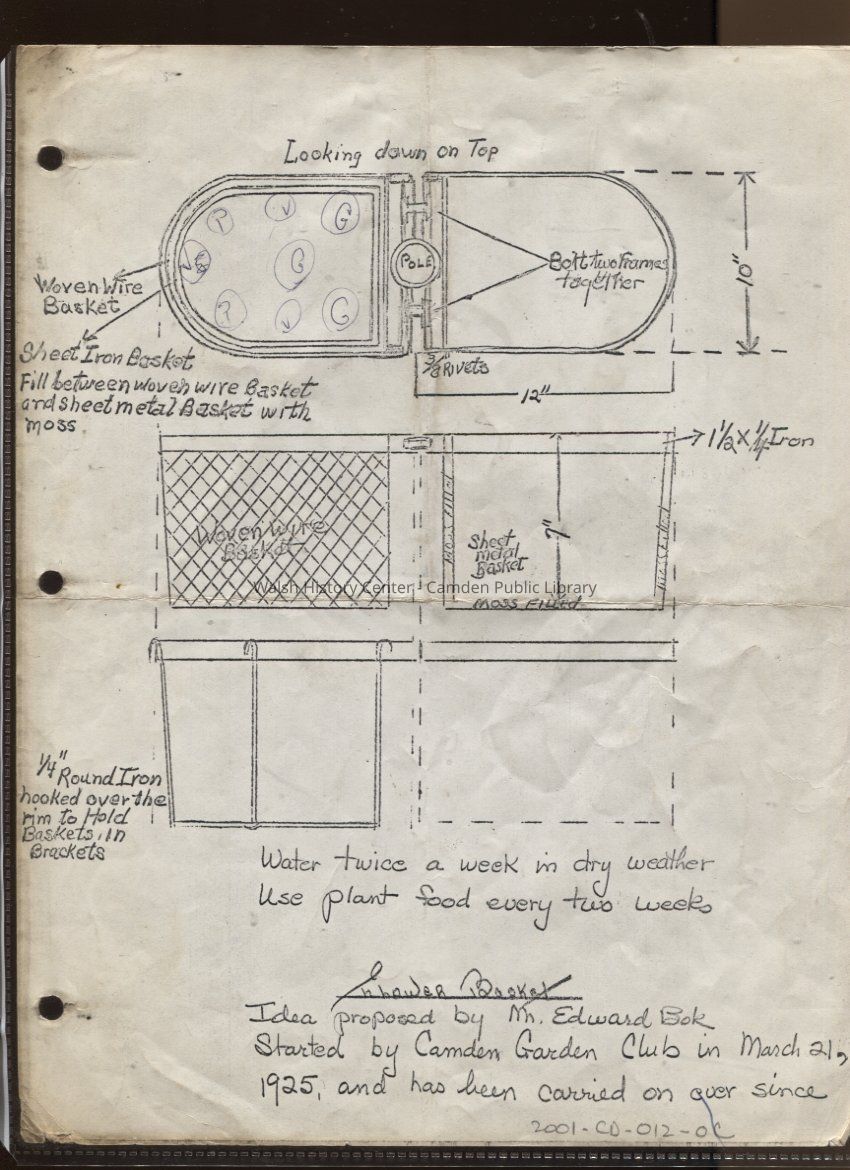 Looking down on Top
P V G
V G
P V G
POLE
Bolt two Frames
together
10"
Woven Wire
Basket
Sheet Iron Basket
Fill between woven wire Basket
and sheet metal Basket with
moss
3/8" Rivets
12"
1 1/2 X 1/4 Iron
Woven Wire
Basket
Moss Filled
Sheet
metal
Basket
7"
Moss Filled
Walsh History Center - Camden Public Library
1/4" Round Iron
hooked over the
rim to Hold
Baskets in
Brackets
Water twice a week in dry weather
Use plant food every two weeks
Flower Basket
Idea proposed by Mr. Edward Bok
Started by Camden Garden Club in March 21,
1925, and has been carried on ever since
2001-CD-012-0C